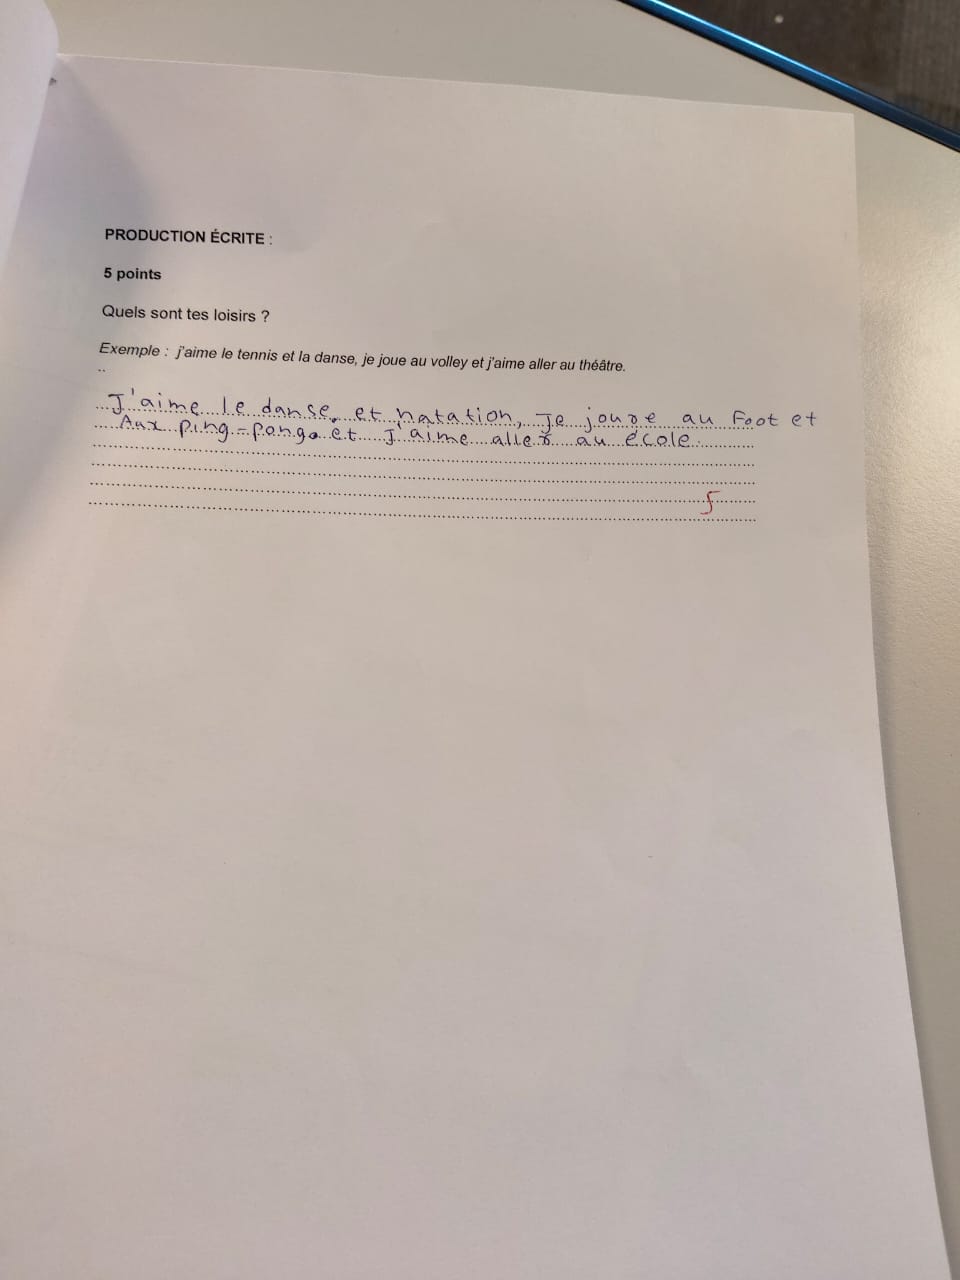 PRODUCTION ÉCRITE :
5 points
Quels sont tes loisirs ?
Exemple : j'aime le tennis et la danse, je joue au volley et j'aime aller au théâtre.
..
J'aime le danse, et natation, Je joure au Foot et
Aux ping-pong. et J'aime aller au école.
5